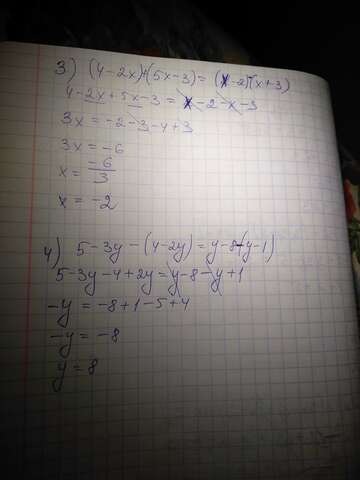 3) (4-2x)+(5x-3)=(x-2)-(x+3)
4-2x+5x-3=x-2-x-3
3x=-2-3-4+3
3x=-6
x=-6/3
x=-2
4) 5-3y-(4-2y)=y-8-(y-1)
5-3y-4+2y=y-8-y+1
-y=-8+1-5+4
-y=-8
y=8